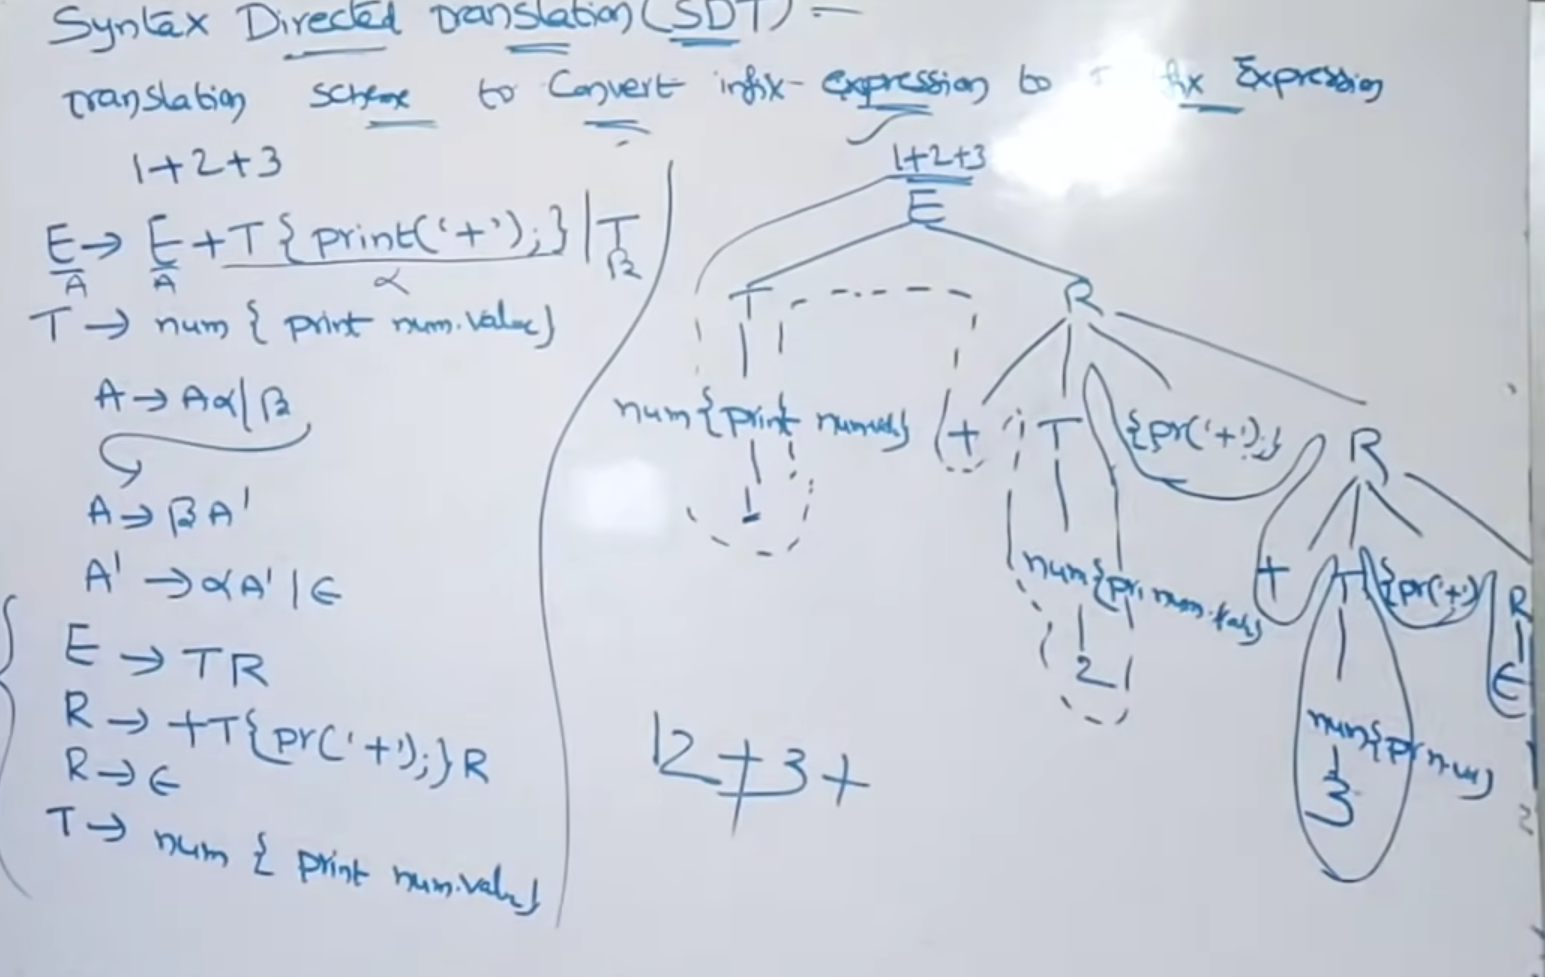 Syntax Directed Translation (SDT) :-
Translation scheme to Convert infix-expression to fix Expression
1+2+3
E → E + T { print('+'); } | T
A A α β
T → num { print num.value}
A → Aα|β
A → βA'
A' → αA' | ∈
E → TR
R → +T{pr('+');}R
R → ∈
T → num { print num.value}
1+2+3
E
T R
num{print num.val} + T {pr('+');} R
1
num{pr, num.val}
2
+ T {pr('+')} R
∈
num{pr n.val}
3
12+3+